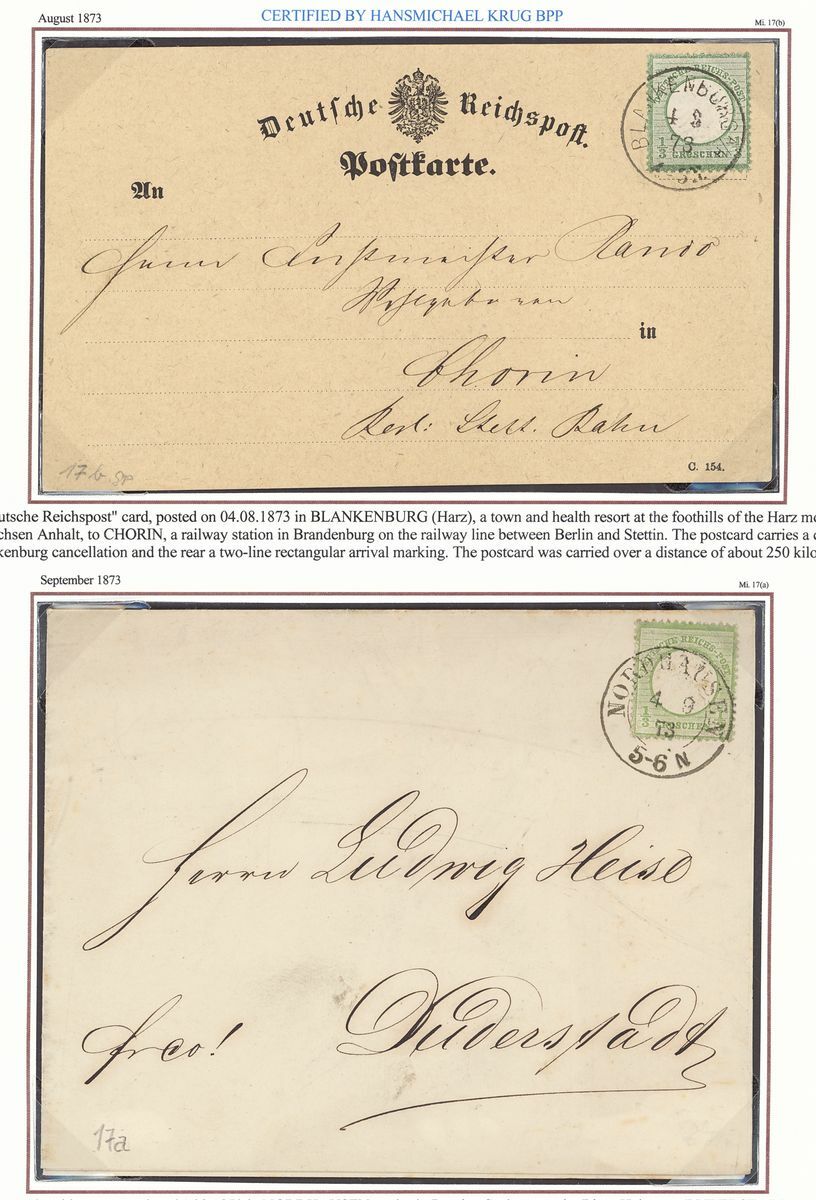 August 1873
CERTIFIED BY HANSMICHAEL KRUG BPP
Mi. 17(b)
Deutsche Reichspost.
Postkarte.
An
DEUTSCHE REICHS-POST
1/3 GROSCHEN
BLANKENBURG
4 8
73
Herrn Forstmeister Bando
Wohlgeboren
in
Chorin
Berl: Stett. Bahn
17 b
C. 154.
utsche Reichspost" card, posted on 04.08.1873 in BLANKENBURG (Harz), a town and health resort at the foothills of the Harz mo
chsen Anhalt, to CHORIN, a railway station in Brandenburg on the railway line between Berlin and Stettin. The postcard carries a c
kenburg cancellation and the rear a two-line rectangular arrival marking. The postcard was carried over a distance of about 250 kilo
September 1873
Mi. 17(a)
DEUTSCHE REICHS-POST
1/3 GROSCHEN
NORDHAUSEN
4 9
73
5-6 N
Herrn Ludwig Heise
frco!
Duderstadt
17a